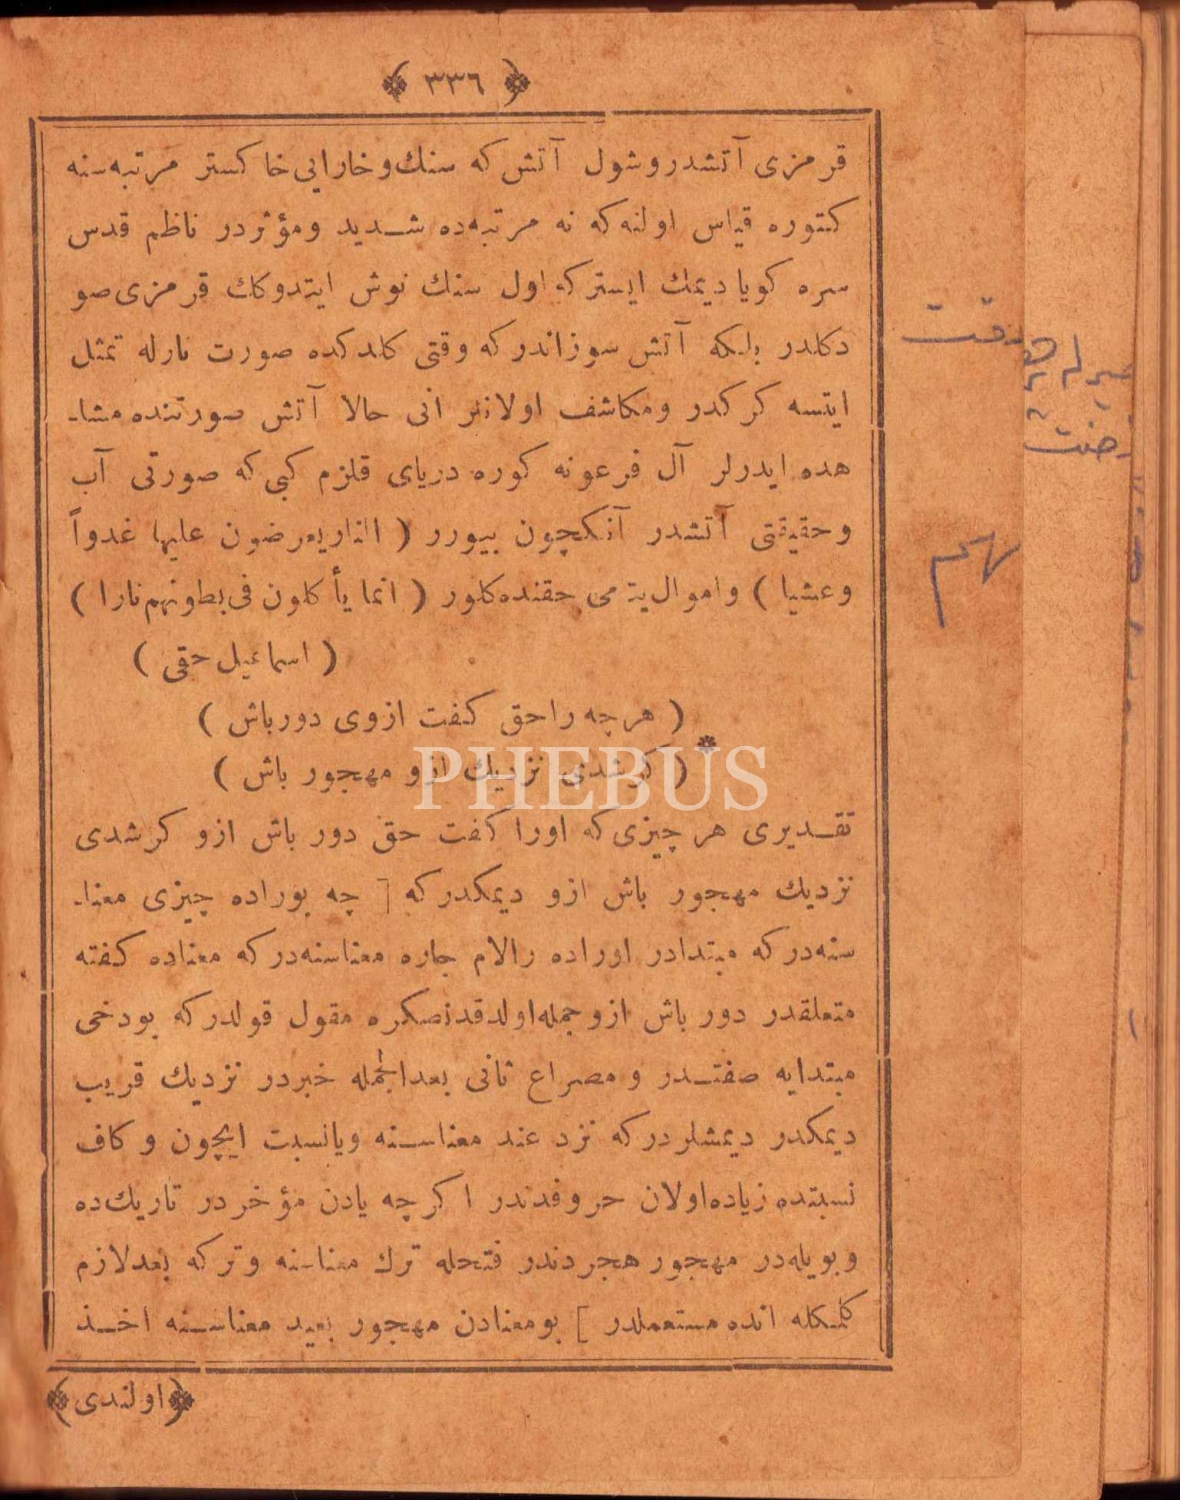 ٣٣٦
قرمزی آتشدر و شول آتش كه سنك و خارایی خاكستر مرتبه سنه
كتوره قیاس اولنه كه نه مرتبه ده شدید و مؤثر در ناظم قدس
سره كویا دیمك ایستر كه اول سنك نوش ایتدوكك قرمزی صو
دكلدر بلكه آتش سوزاندر كه وقتی كلدكده صورت نارله تمثل
ایتسه كركدر ومكاشف اولانلر انی حالا آتش صورتنده مشا۔
هده ایدرلر آل فرعونه كوره دریای قلزم كبی كه صورتی آب
وحقیقتی آتشدر آنكچون بیورر ( النار یعرضون علیها غدواً
وعشیا ) واموال یتمی حقنده كلور ( انما یأكلون فی بطونهم نارا )
( اسماعیل حقی )
( هر چه را حق كفت از وی دور باش )
( كر شدی نزدیك ازو مهجور باش )
تقدیری هر چیزی كه اورا كفت حق دور باش ازو كر شدی
نزدیك مهجور باش ازو دیمكدر كه [ چه بوراده چیزی معنا۔
سنه در كه مبتدادر اوراده را لام جاره معناسنه در كه معناده كفته
متعلقدر دور باش ازو جمله اولدقدنصكره مقول قولدر كه بودخی
مبتدایه صفتدر و مصراع ثانی بعد الجمله خبردر نزدیك قریب
دیمكدر دیمشلردر كه نزد عند معناسنه ویا نسبت ایچون و كاف
نسبتده زیاده اولان حروفدندر اكرچه یادن مؤخر در تاریك ده
وبویله در مهجور هجردندر فتحله ترك معناسنه وتركه بعد لازم
كلمكله انده مستعملدر ] بومعنادن مهجور بعید معناسنه اخذ
اولندی
PHEBUS